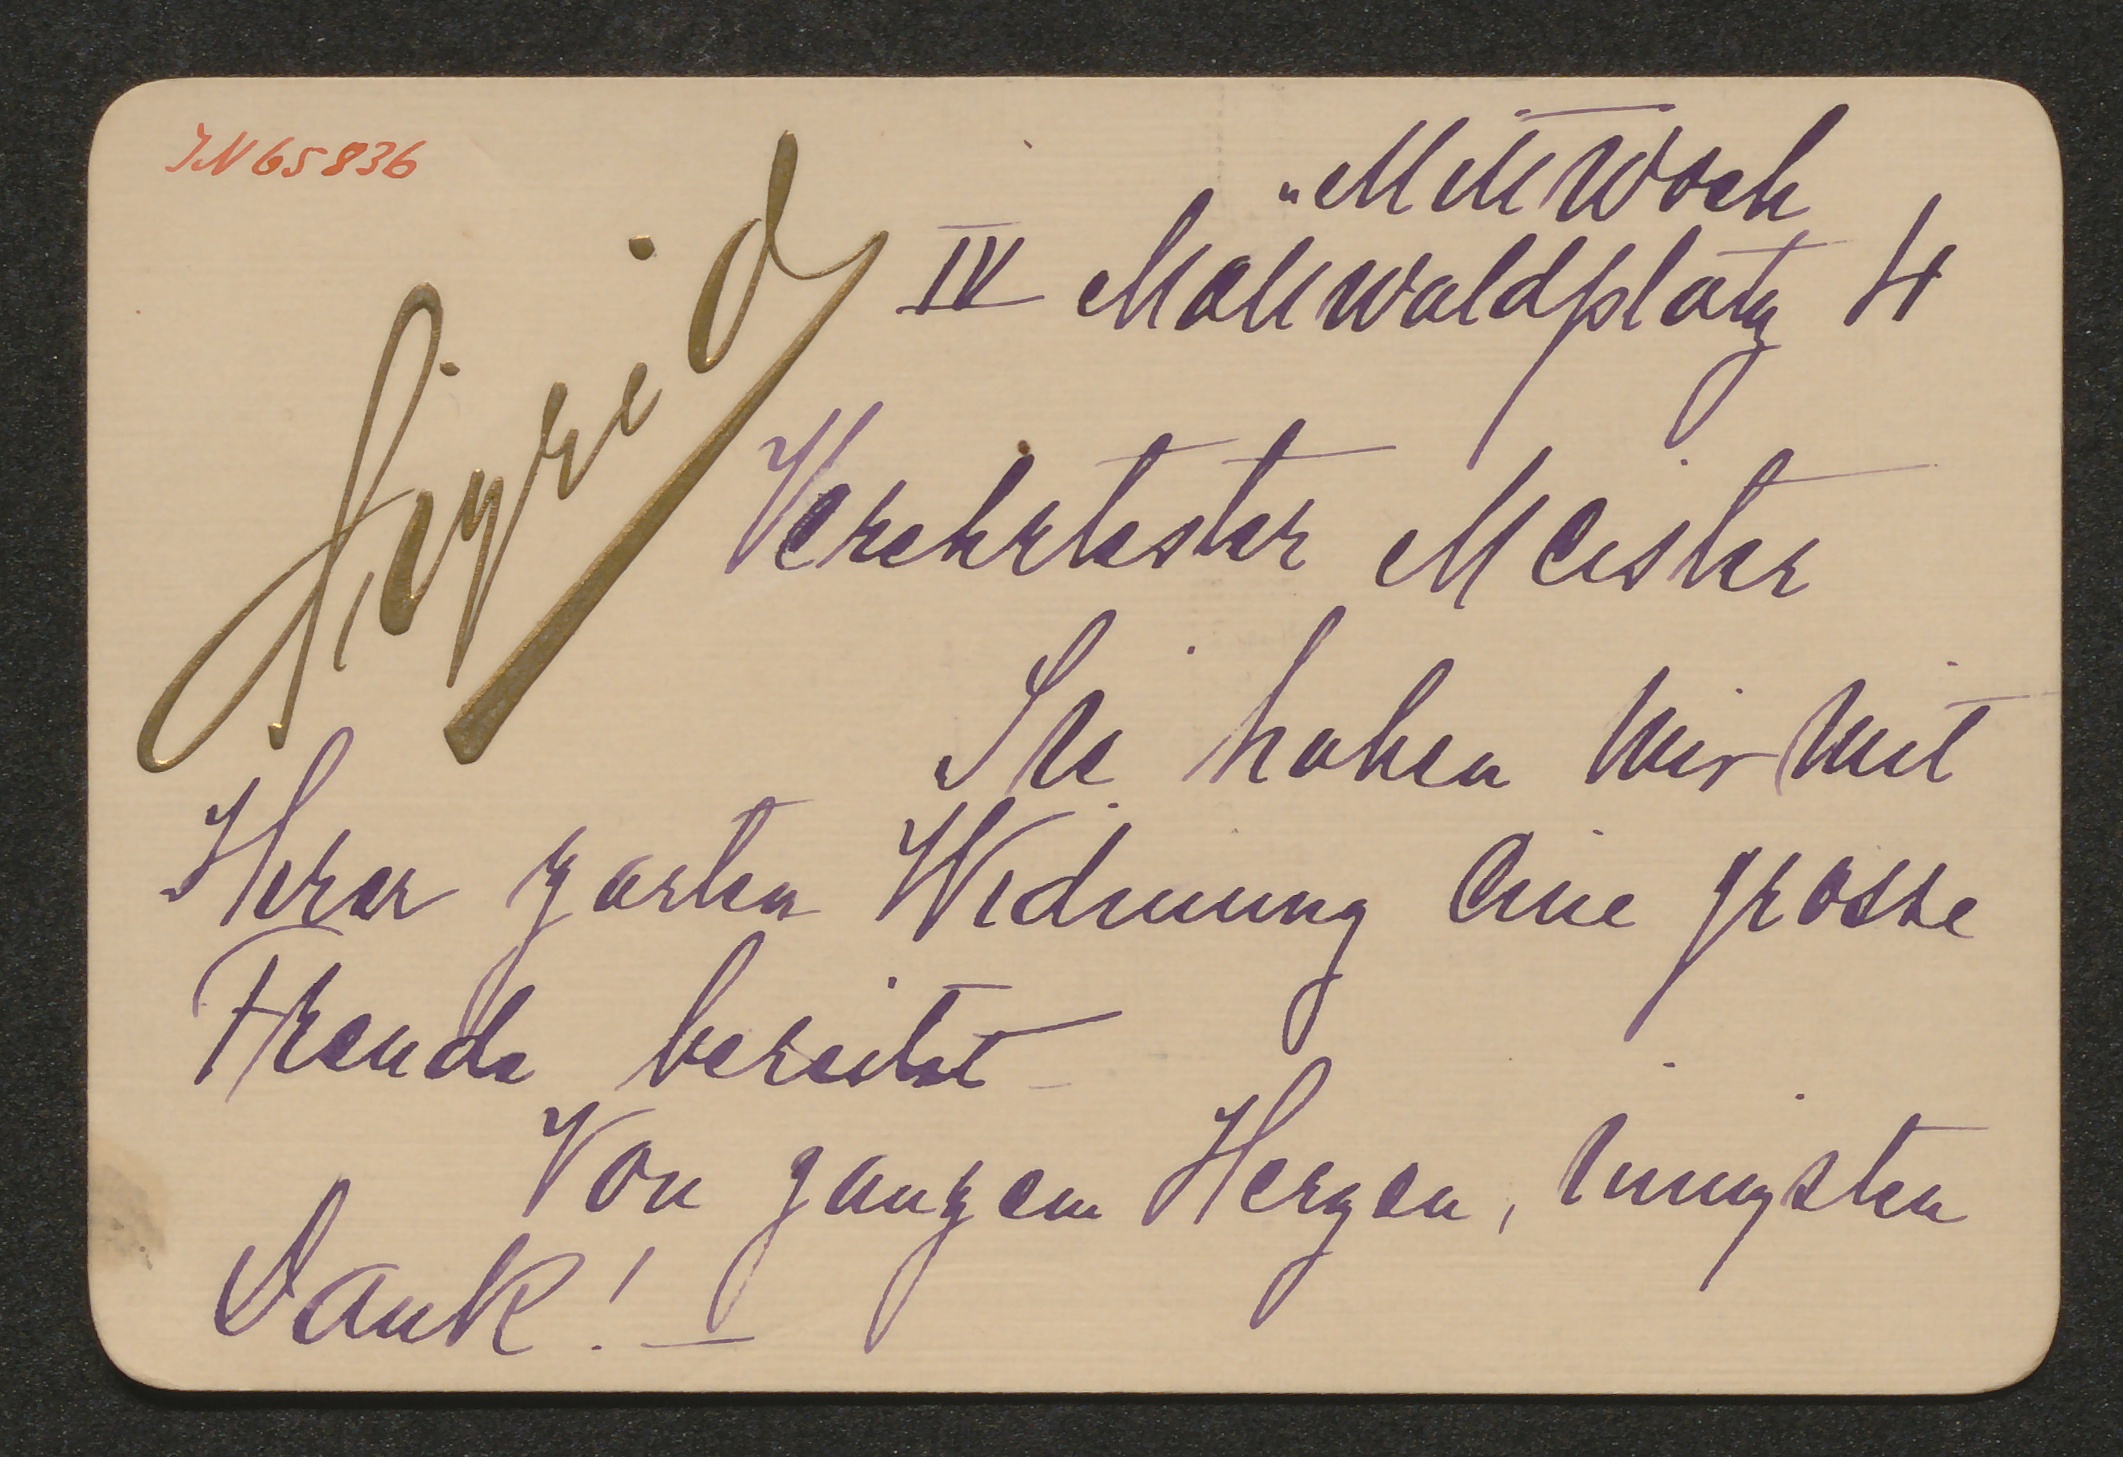 IN 65836
Sigrid
Mittwoch
IV Mollwaldplatz 4
Verehrtester Meister
Sie haben mir mit
Ihrer zarten Widmung eine grosse
Freude bereitet –
Von ganzem Herzen, innigsten
Dank! –